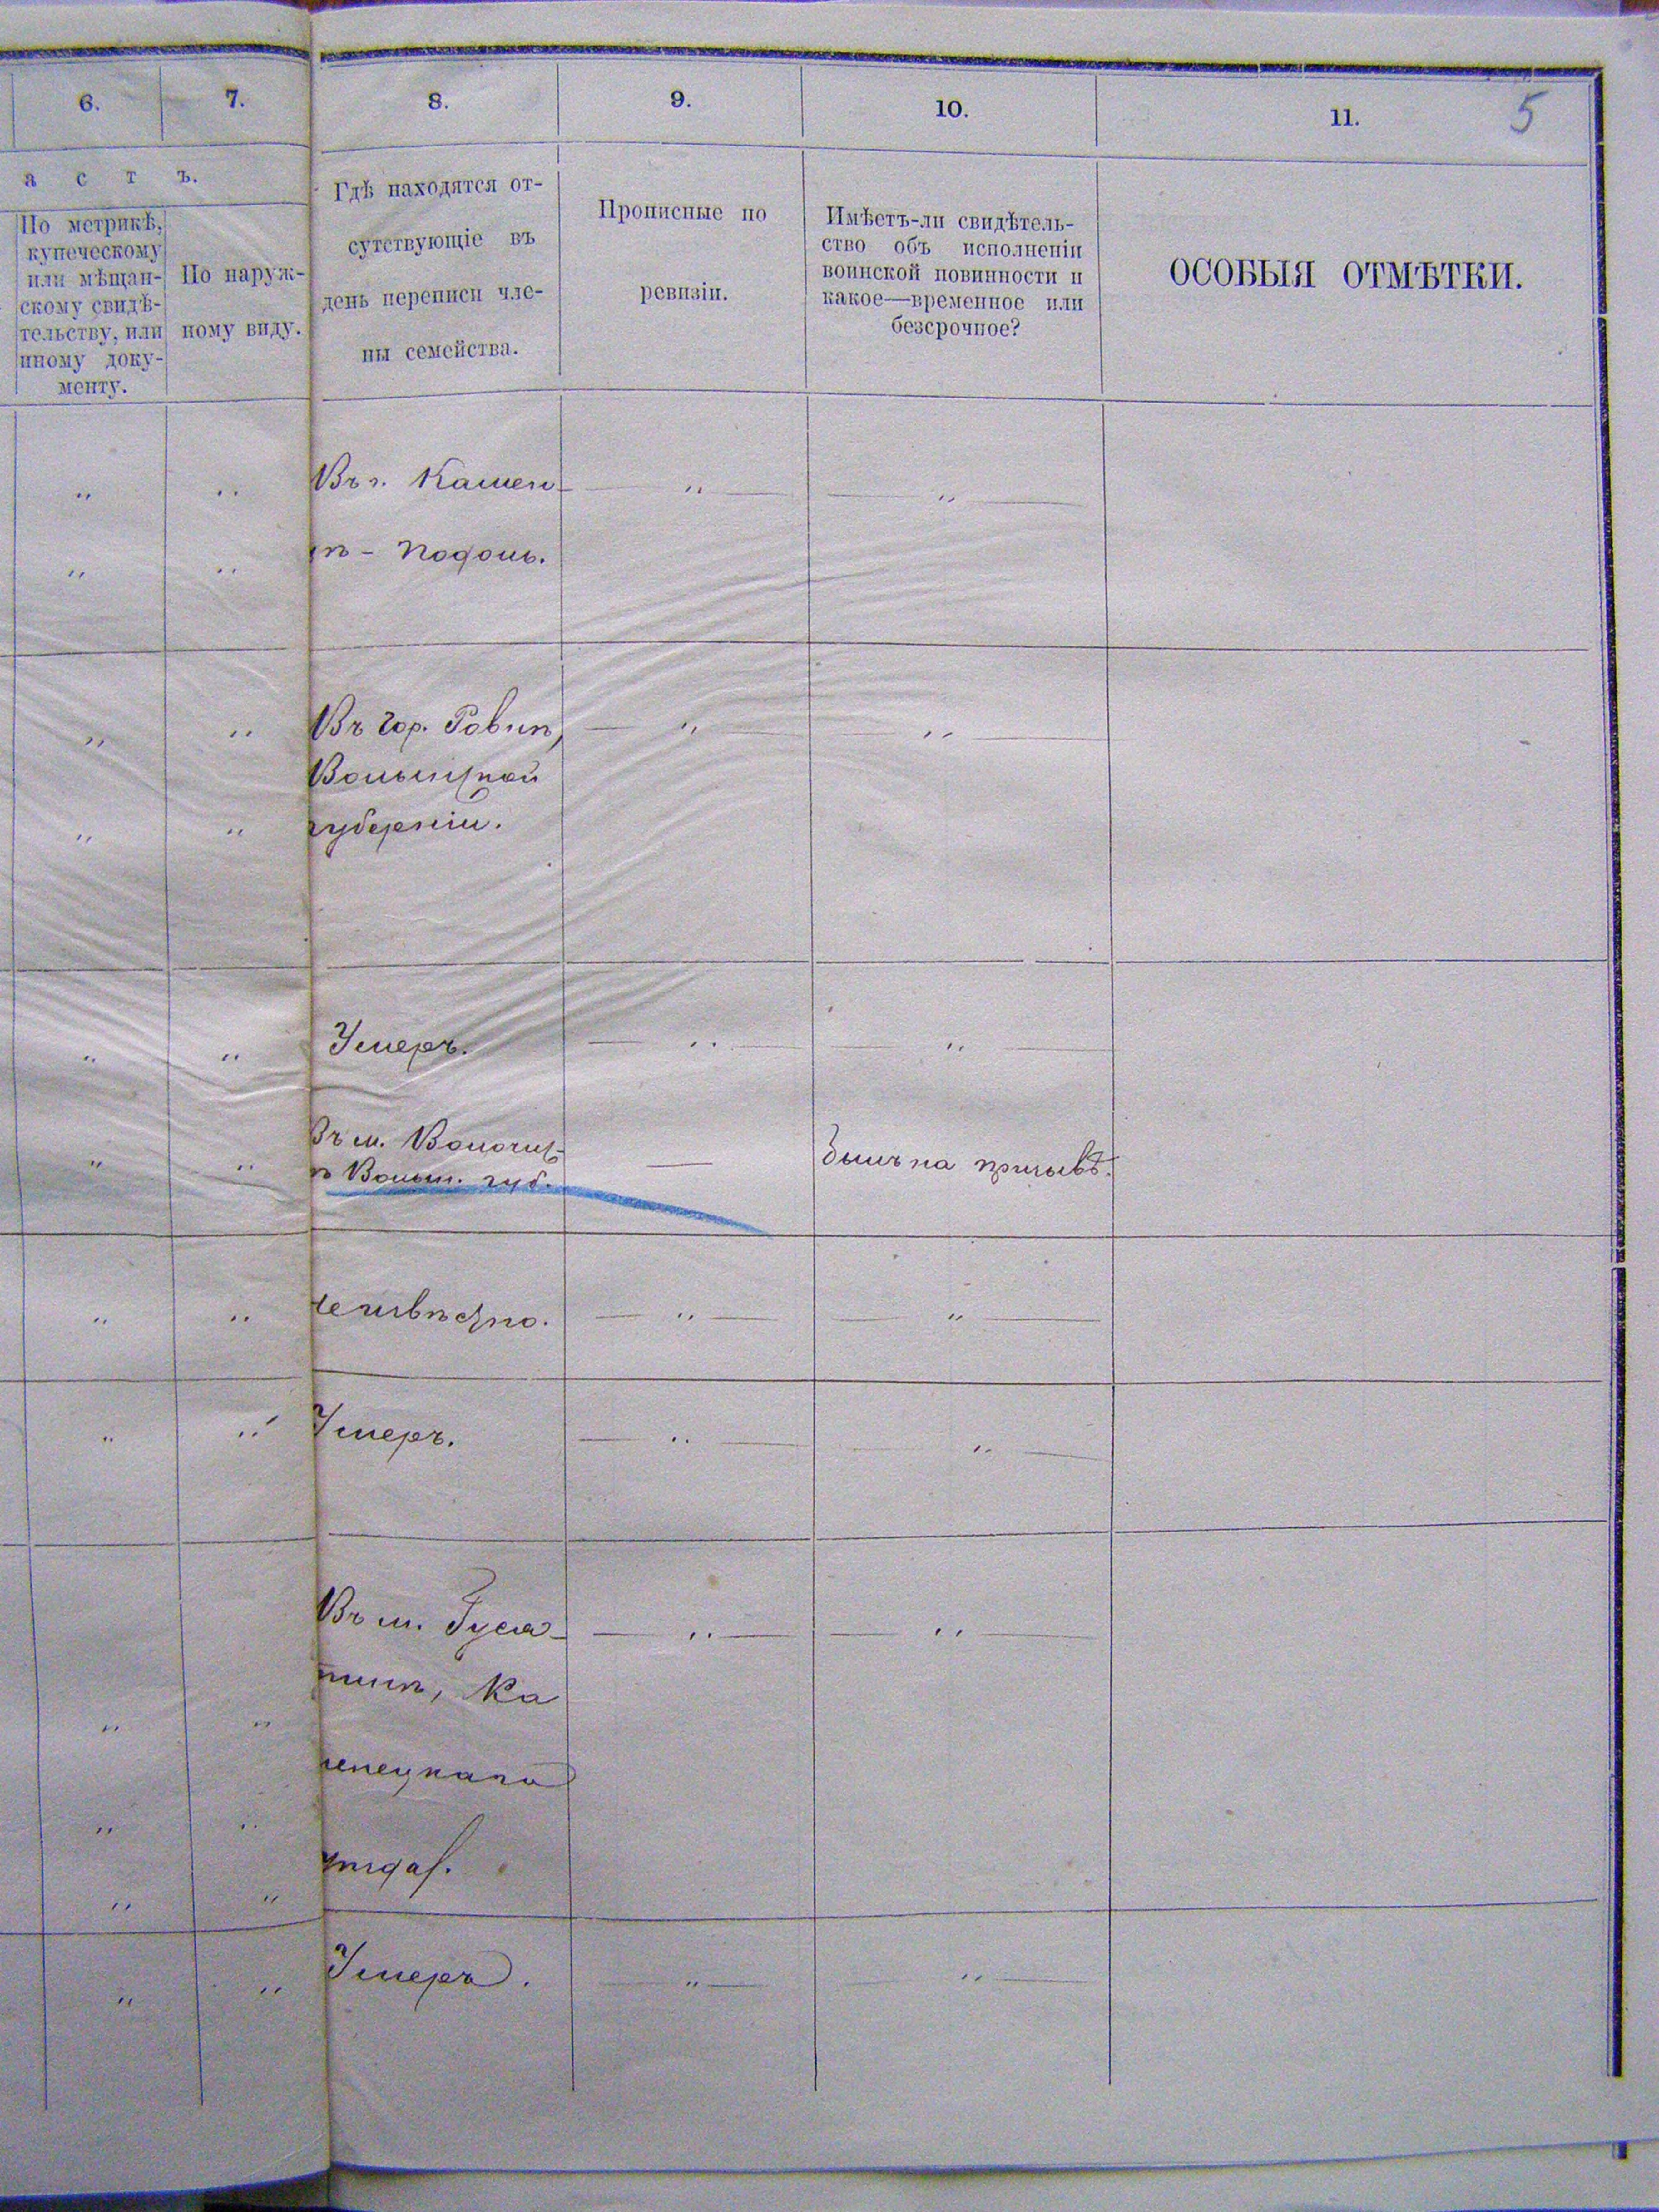 6. 7. 8. 9. 10. 11. 5
а с т ъ.
По метрикѣ,
купеческому
или мѣщан-
скому свидѣ-
тельству, или
иному доку-
менту.
По наруж-
ному виду.
Гдѣ находятся от-
сутствующіе въ
день переписи чле-
ны семейства.
Прописные по
ревизіи.
Имѣетъ-ли свидѣтель-
ство объ исполненіи
воинской повинности и
какое—временное или
безсрочное?
ОСОБЫЯ ОТМѢТКИ.
„ „ Въ г. Камен- — „ — — „ —
„ „ цѣ - Подол.
„ „ Въ гор. Ровнѣ, — „ — — „ —
Волынской
„ „ губерніи.
„ „ Умеръ. — „ — — „ —
Въ м. Волочис-
„ „ кѣ Волын. губ. — былъ на призывѣ.
„ „ неизвѣстно. — „ — — „ —
„ „ Умеръ. — „ — „ —
Въ м. Гуся- — „ — — „ —
тинѣ, Ка
„ „
менецкаго
„ „
уѣзда.
„ „
„ „ Умеръ. — „ — „ —